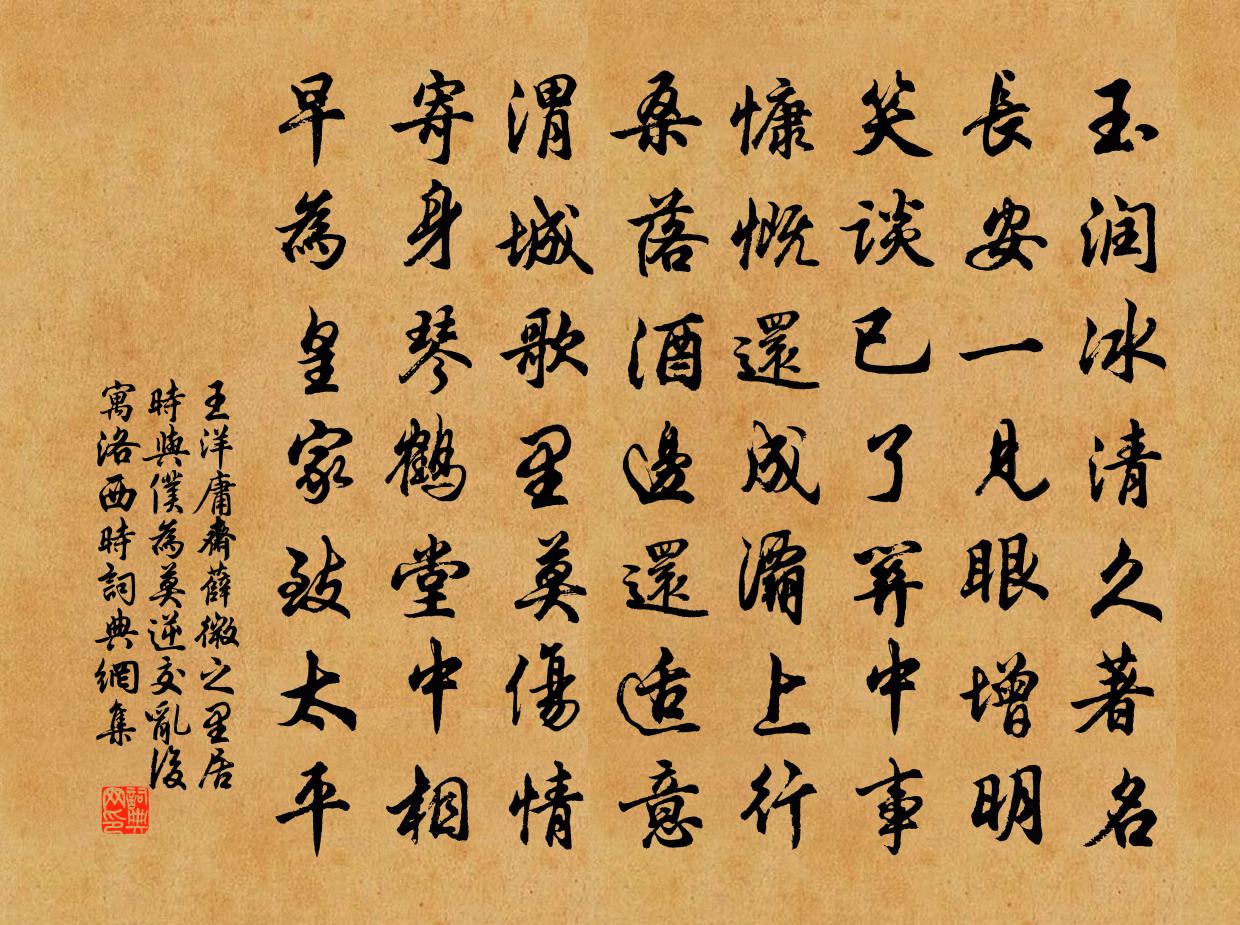 玉润冰清久著名
長安一見眼增明
笑谈已了算中事
慷慨還成灞上行
桑落酒邊還适意
渭城歌里莫傷情
寄身琴鶴堂中相
早為皇家致太平
王洋庸齋薛微之里居
時與僕為莫逆交亂後
寓洛西時詞典網集
詞典网印